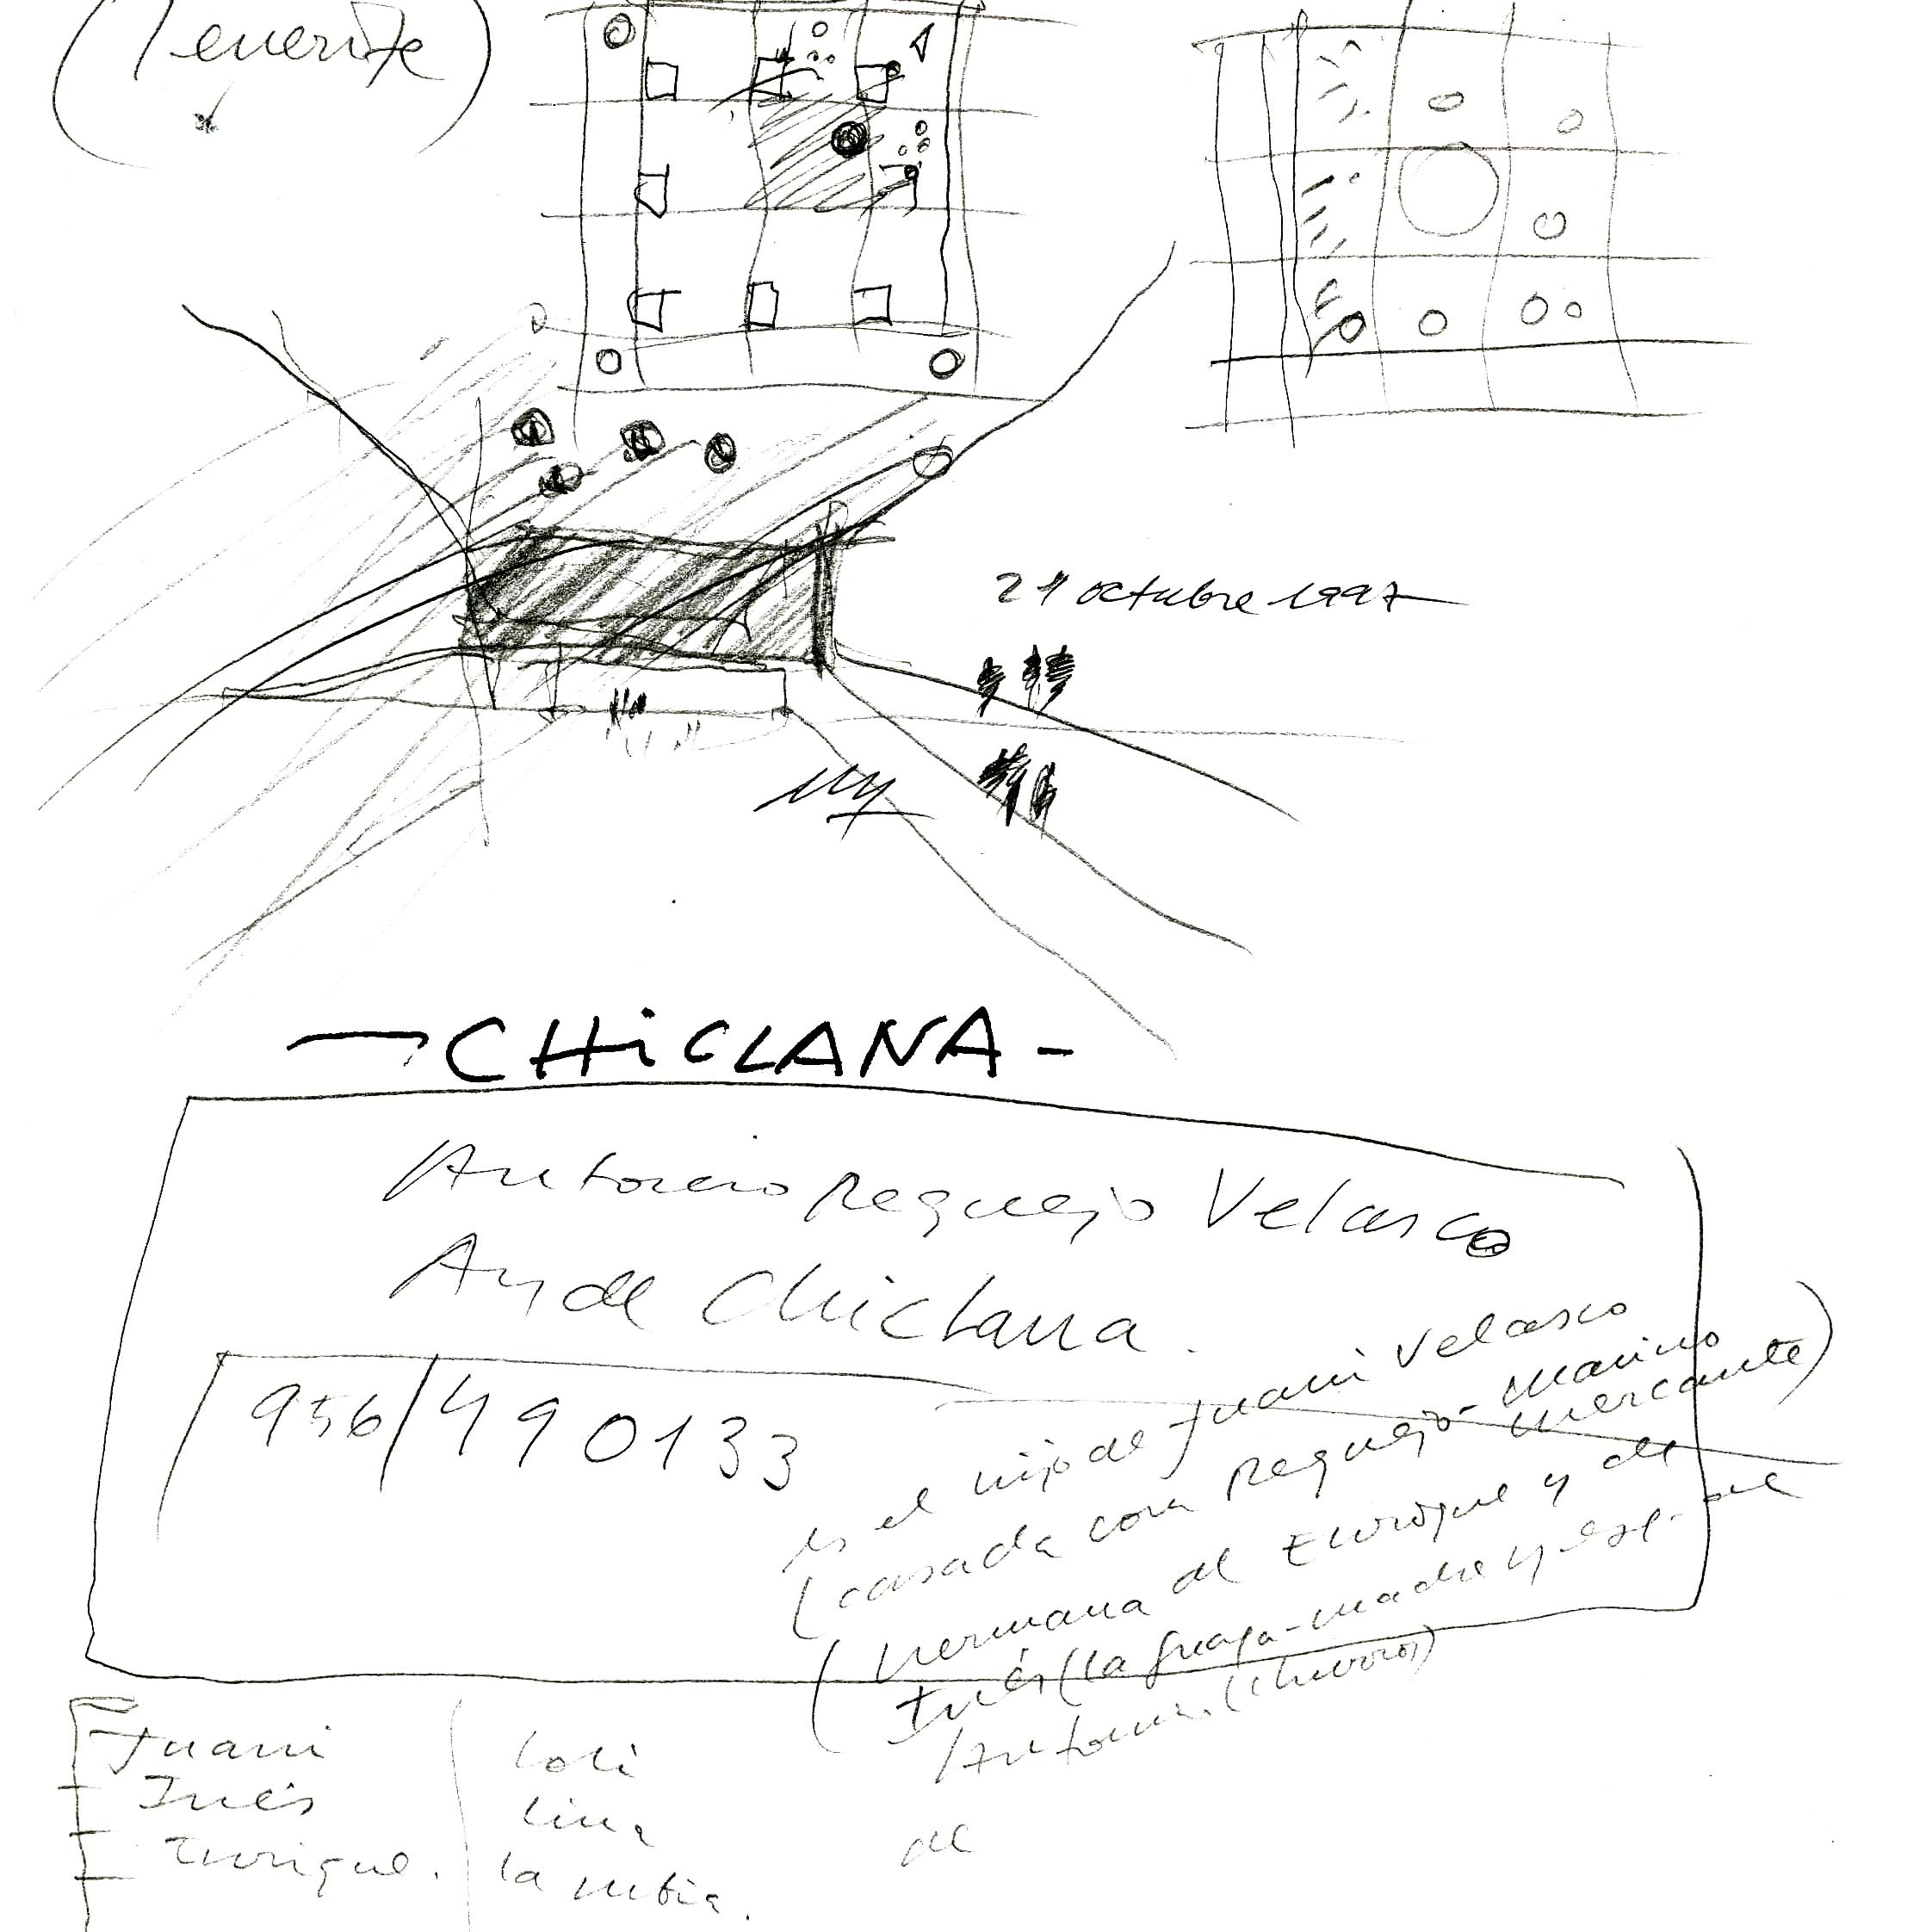 (Tenerife)
21 octubre 1997
- CHiCLANA -
Antonio Requejo Velasco
Ay de Chiclana.
956/490133
es el hijo de Juani Velasco
(casada con Requejo - marino mercante)
(hermana de Enrique y de
Inés (la guapa - madre y esp
Antonio. (churros)
Juani
Inés
Enrique.
Loli
Lina
la rubia.
de